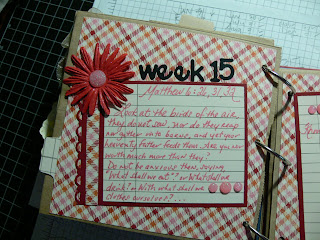 week 15
Matthew 6:26, 31, 32
Look at the birds of the air,
they do not sow, nor do they reap
nor gather into barns, and yet your
heavenly Father feeds them. Are you not
worth much more than they?
Do not be anxious then, saying
"What shall we eat"? or What shall we
drink? or With what shall we
clothe ourselves?...